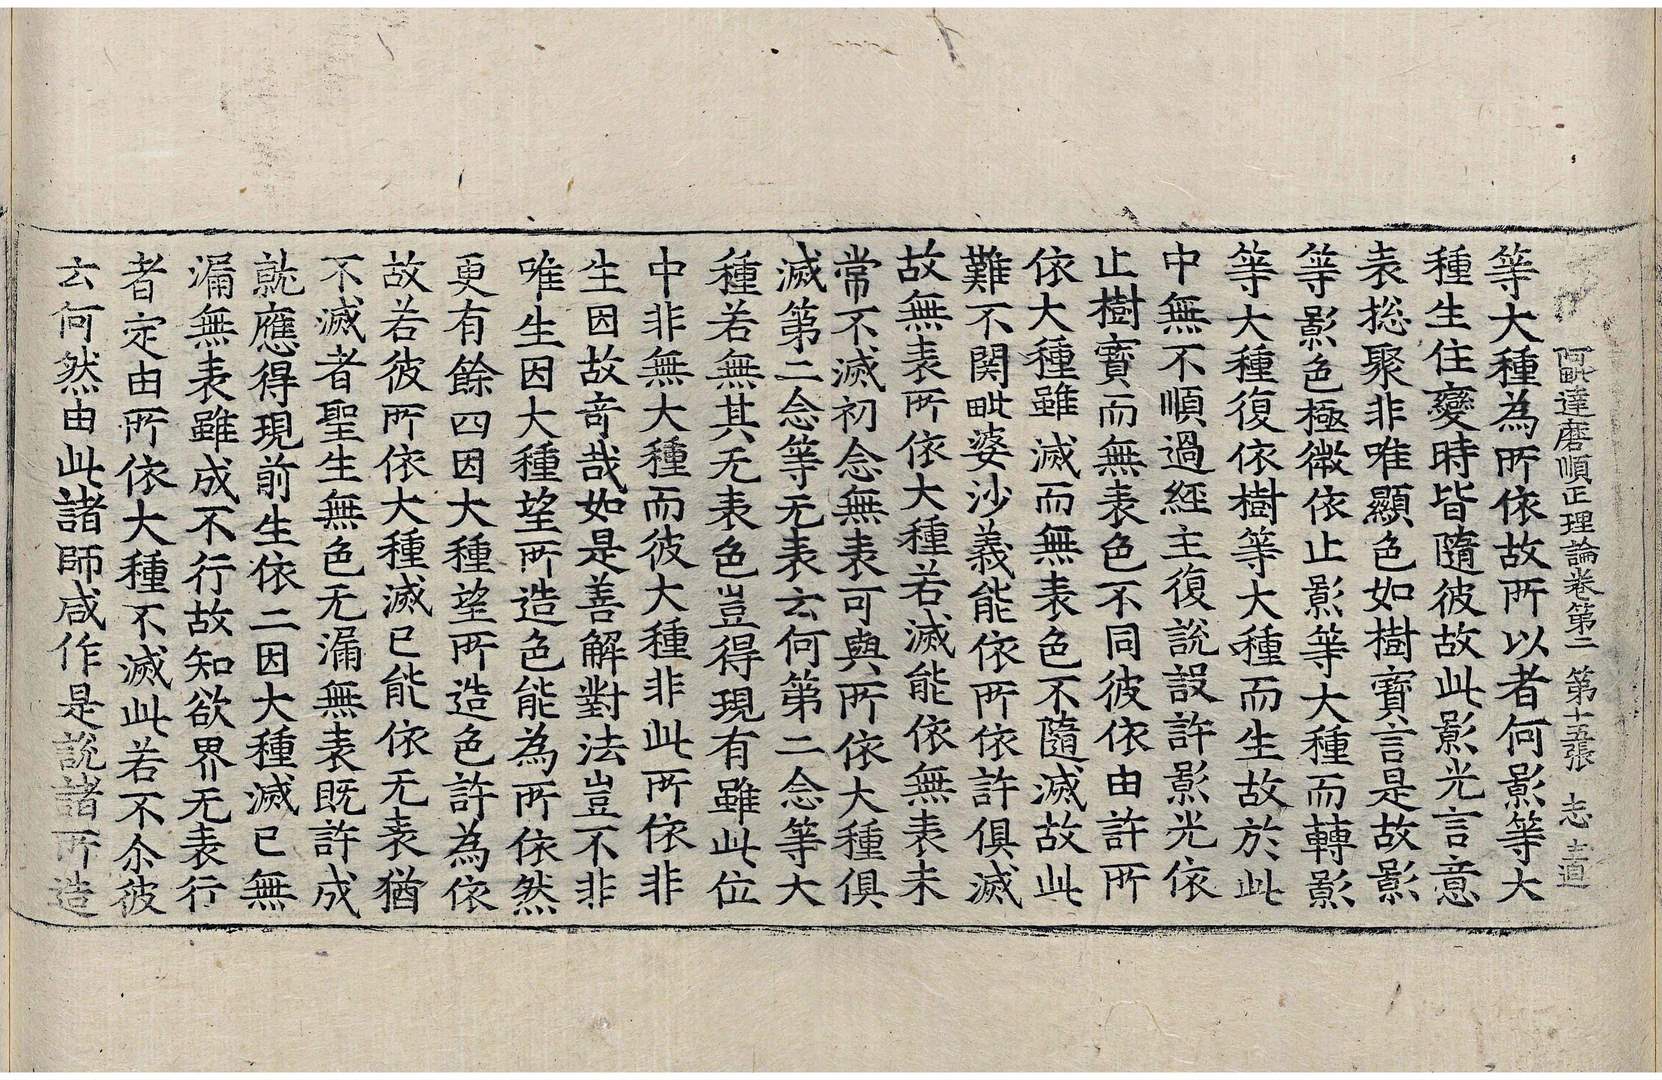 阿毗達磨順正理論卷第二　第十五張　志
等大種為所依故所以者何影等大
種生住變時皆隨彼故此影光言意
表捴聚非唯顯色如樹寶言是故影
等影色極微依止影等大種而轉影
等大種復依樹等大種而生故於此
中無不順過經主復說設許影光依
止樹寶而無表色不同彼依由許所
依大種雖滅而無表色不隨滅故此
難不關毗婆沙義能依所依許俱滅
故無表所依大種若滅能依無表未
常不滅初念無表可與所依大種俱
滅第二念等无表云何第二念等大
種若無其无表色豈得現有雖此位
中非無大種而彼大種非此所依非
生因故奇哉如是善解對法豈不非
唯生因大種望所造色能為所依然
更有餘四因大種望所造色許為依
故若彼所依大種滅已能依无表猶
不滅者聖生無色无漏無表既許成
就應得現前生依二因大種滅已無
漏無表雖成不行故知欲界无表行
者定由所依大種不滅此若不尒彼
云何然由此諸師咸作是說諸所造